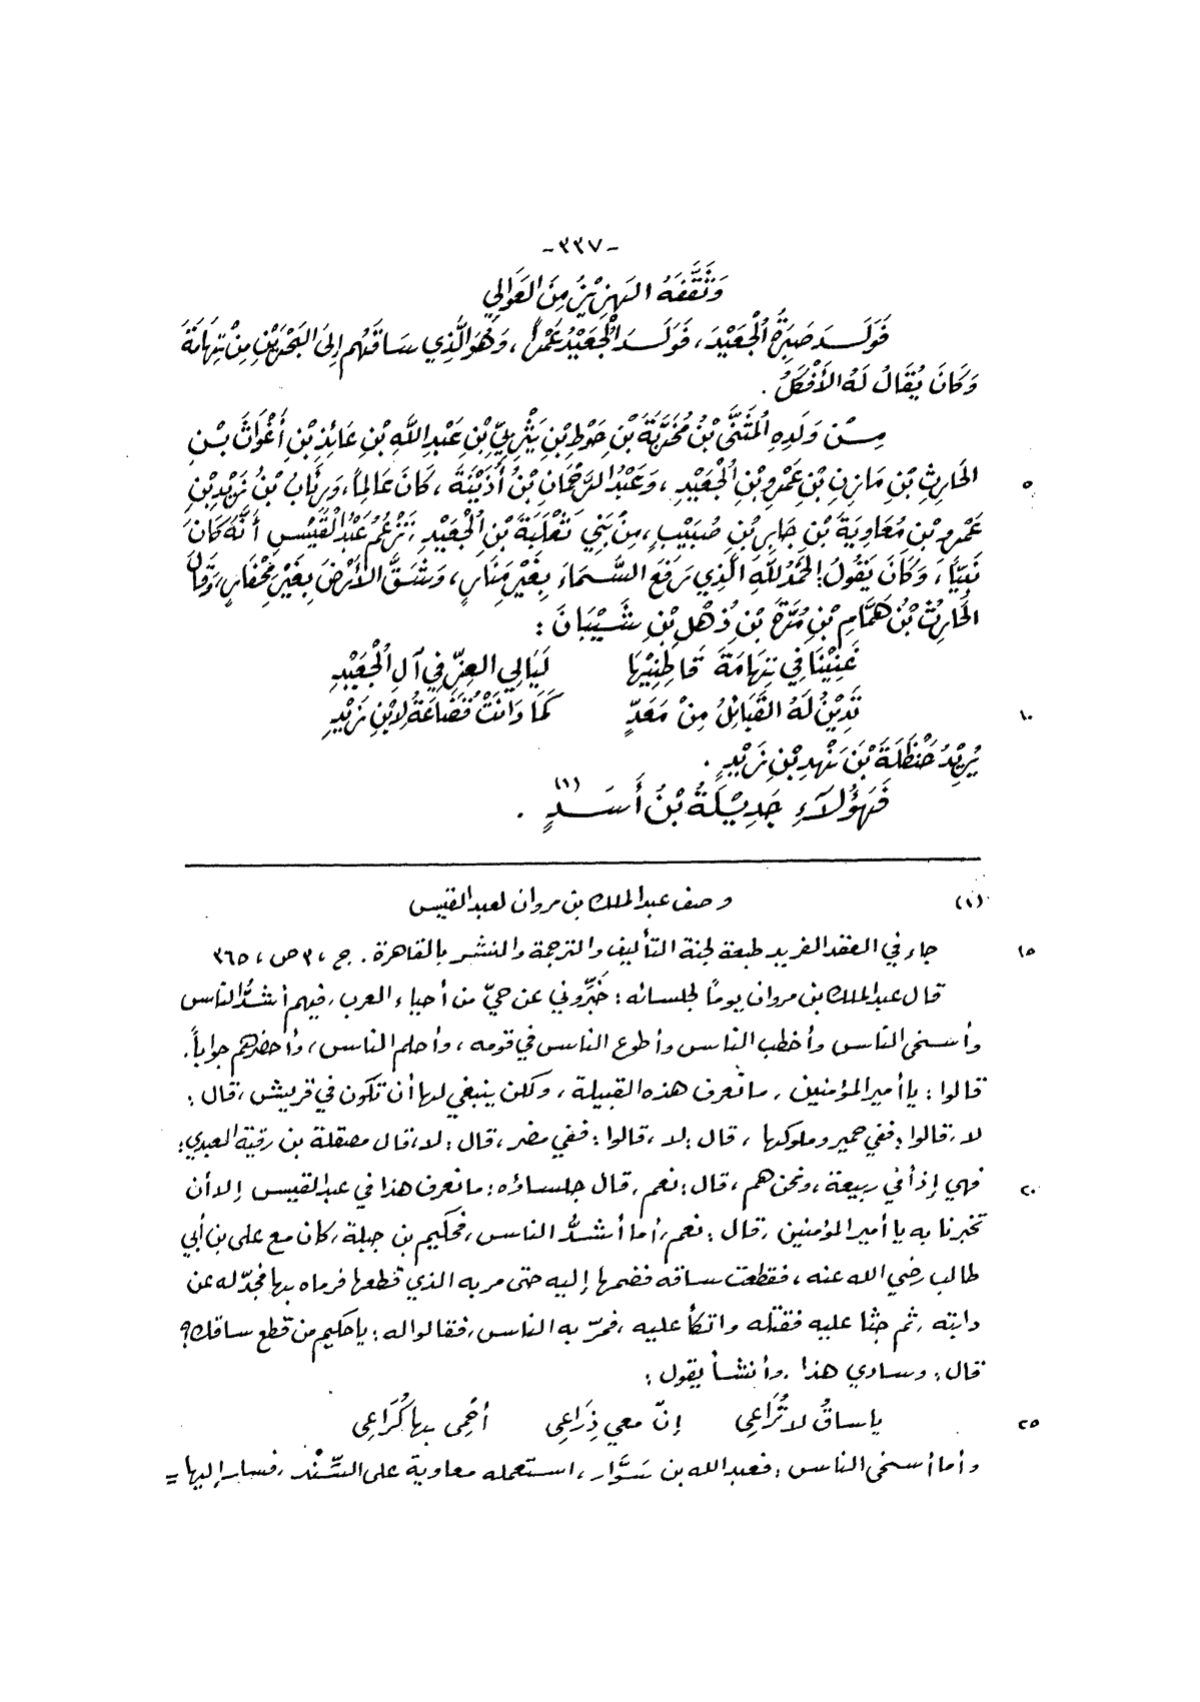 -٣٣٧-
وَثَقَّفَهُ الْيَزِنِيُّ مِنَ العَوَالِي
فَوَلَدَ صَبِرَةُ الْجُعَيْدَ، فَوَلَدَ الْجُعَيْدُ عَمْراً، وَهُوَ الَّذِي سَاقَهُم إِلَى البَحْرَيْنِ مِنْ تِهَامَةَ
وَكَانَ يُقَالُ لَهُ الأَفْكَلُ.
مِنْ وَلَدِهِ الْمُثَنَّى بْنُ مُخَرِّبَةَ بْنِ حَوْطِ بْنِ يَثْرِبِيِّ بْنِ عَبْدِ اللَّهِ بْنِ عَائِذِ بْنِ أَغْوَاثَ بْنِ
٥ الحَارِثِ بْنِ مَازِنِ بْنِ عَمْرِو بْنِ الْجُعَيْدِ، وَعَبْدُ الرَّحْمَانِ بْنُ أُذَيْنَةَ، كَانَ عَالِماً، وَرِئَابُ بْنُ زَيْدِ بْنِ
عَمْرِو بْنِ مُعَاوِيَةَ بْنِ جَابِرِ بْنِ ضُبَيْبٍ، مِنْ بَنِي ثَعْلَبَةَ بْنِ الْجُعَيْدِ، تَزْعُمُ عَبْدُ الْقَيْسِ أَنَّهُ كَانَ
نَبِيَّاً، وَكَانَ يَقُولُ: الحَمْدُ للَّهِ الَّذِي رَفَعَ السَّمَاءَ بِغَيْرِ مَنَارٍ، وَشَقَّ الأَرْضَ بِغَيْرِ مِحْفَارٍ، وَقَالَ
الحَارِثُ بْنُ هَمَّامِ بْنِ مُرَّةَ بْنِ ذُهْلِ بْنِ شَيْبَانَ:
غَنِيْنَا فِي تِهَامَةَ قَاطِنِيْهَا لَيَالِي العِزِّ فِي آلِ الْجُعَيْدِ
١٠ تَدِيْنُ لَهُ القَبَائِلُ مِنْ مَعَدٍّ كَمَا دَانَتْ قُضَاعَةُ لِابْنِ زَيْدِ
يُرِيْدُ حَنْظَلَةَ بْنَ نَهْدِ بْنِ زَيْدٍ.
فَهَؤُلَاءِ جَدِيْلَةُ بْنُ أَسَدٍ (١).
(١) وصف عبد الملك بن مروان لعبد القيس
١٥ جاء في العقد الفريد طبعة لجنة التأليف والترجمة والنشر بالقاهرة. ج، ٣ ص، ٣٦٥
قال عبد الملك بن مروان يوماً لجلسائه: خَبِّروني عن حيّ من أحياء العرب، فيهم أشدُّ الناس
وأسخى الناس وأخطب الناس وأطوع الناس في قومه، وأحلم الناس، وأحضرهم جواباً.
قالوا: يا أمير المؤمنين، ما نعرف هذه القبيلة، ولكن ينبغي لها أن تكون في قريش، قال:
لا، قالوا: ففي حمير وملوكها، قال: لا، قالوا: ففي مضر، قال: لا، قال مصقلة بن رقية العبدي:
٢٠ فهي إذاً في ربيعة، ونحن هم، قال: نعم، قال جلساؤه: ما نعرف هذا في عبد القيس إلا أن
تخبرنا به يا أمير المؤمنين، قال: نعم، أما أشدُّ الناس، فحكيم بن جبلة، كان مع علي بن أبي
طالب رضي الله عنه، فقطعت ساقه فضمها إليه حتى مر به الذي قطعها فرماه بها فجدّله عن
دابته، ثم جثا عليه فقتله واتكأ عليه، فمرّ به الناس، فقالوا له: يا حكيم من قطع ساقك؟
قال: وسادي هذا، وأنشأ يقول:
٢٥ يا ساقُ لا تُرَاعِي إنّ معي ذِرَاعِي أحْمِي بها كُرَاعِي
وأما أسخى الناس: فعبد الله بن سَوَّار، استعمله معاوية على السِّنْد، فسار إليها =